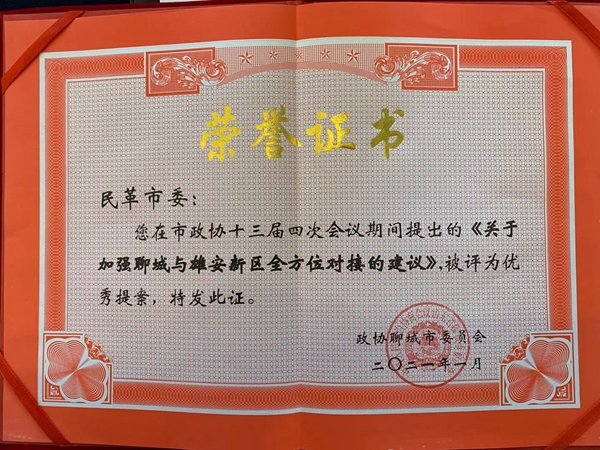 荣誉证书
民革市委：
您在市政协十三届四次会议期间提出的《关于
加强聊城与雄安新区全方位对接的建议》，被评为优
秀提案，特发此证。
政协聊城市委员会
二〇二一年一月